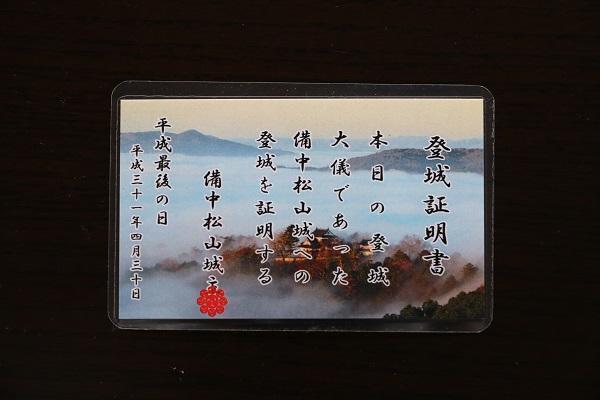 登城証明書
本日の登城
大儀であった
備中松山城への
登城を証明する
備中松山城主
平成最後の日
平成三十一年四月三十日